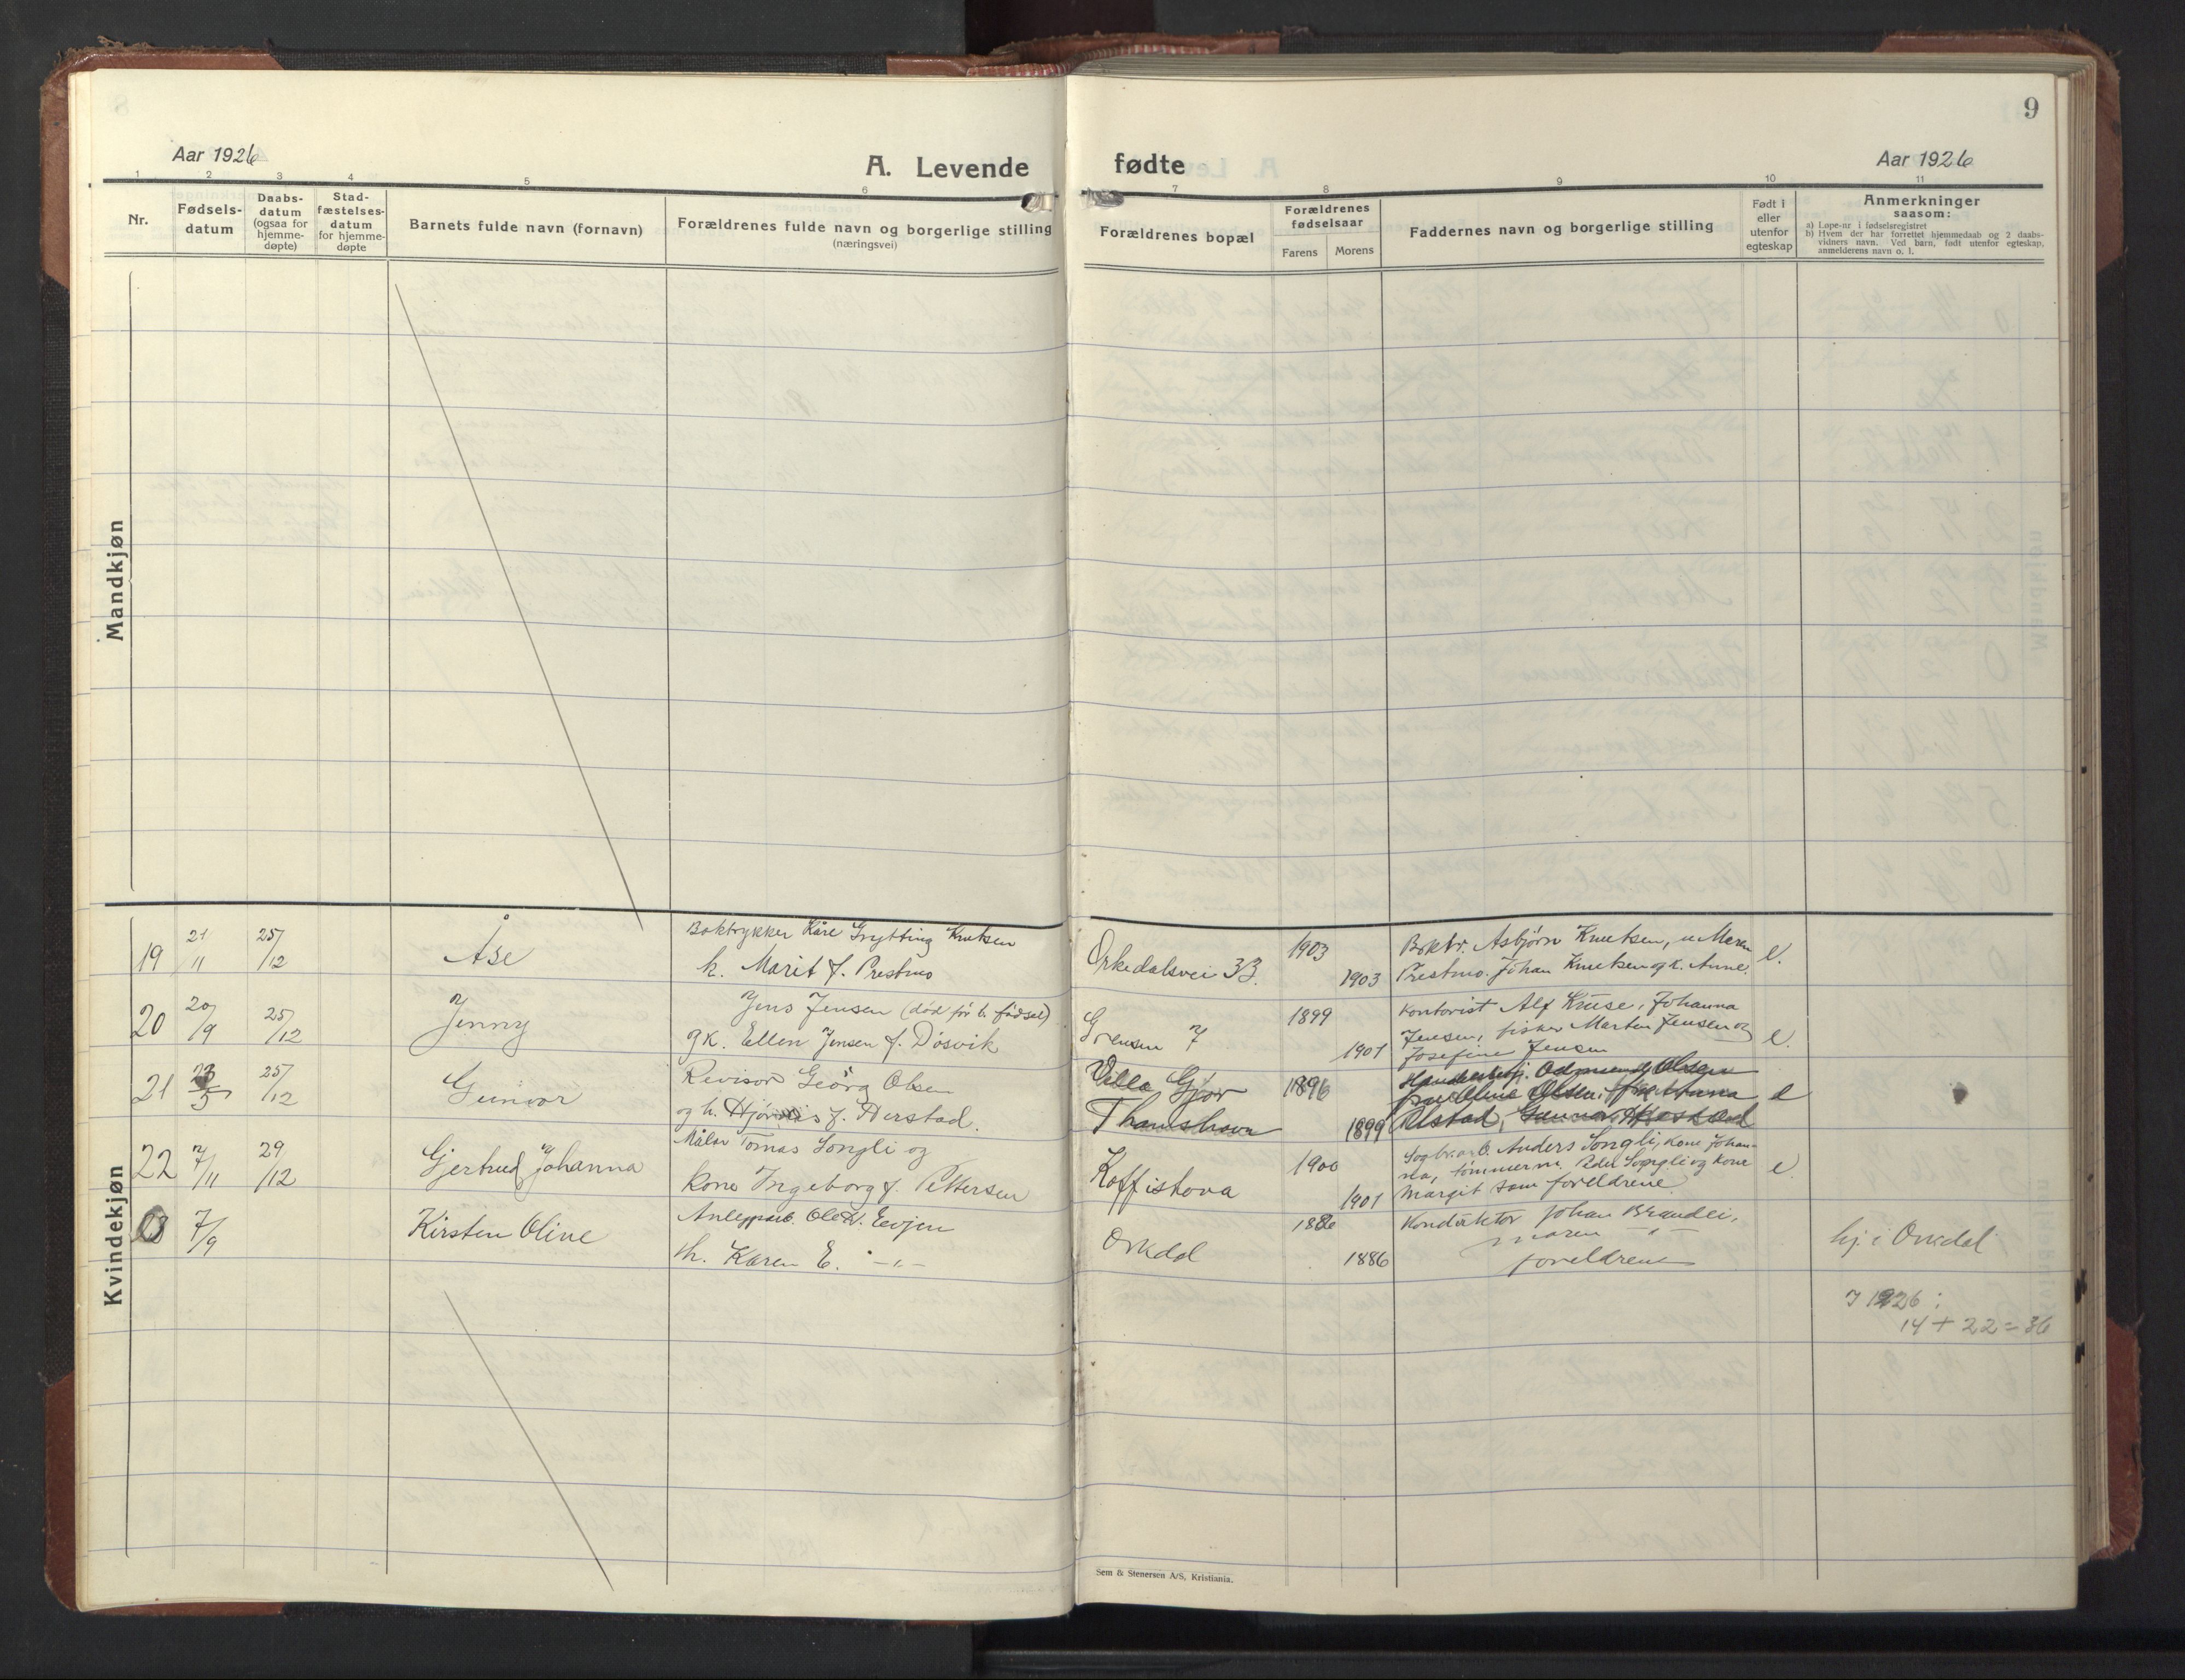 9
Aar 1926
A. Levende
fødte
Aar 1926
1 2 3 4 5 6 7 8 9 10 11
Nr.
Fødsels-
datum
Daabs-
datum
(ogsaa for
hjemme-
døpte)
Stad-
fæstelses-
datum
for hjemme-
døpte
Barnets fulde navn (fornavn)
Forældrenes fulde navn og borgerlige stilling
(næringsvei)
Forældrenes bopæl
Forældrenes
fødselsaar
Farens Morens
Faddernes navn og borgerlige stilling
Født i
eller
utenfor
egteskap
Anmerkninger
saasom:
a) Løpe-nr i fødselsregistret
b) Hvem der har forrettet hjemmedaab og 2 daabs-
vidners navn. Ved barn, født utenfor egteskap,
anmelderens navn o. l.
Mandkjøn
Kvindekjøn
19 21/11 25/12 Åse
Boktrykker Kåre Grytting Knutsen
h. Marit f. Prestmo
Orkedalsvei 33.
1903
1903
Boktr. Asbjørn Knutsen, u Maren
Prestmo. Johan Knutsen og k. Anne.
e.
20 20/9 25/12 Jenny
Jens Jensen (død før b. fødsel)
gk. Ellen Jensen f. Døsvik
Grensen 7
1899
1901
Kontorist Alf Kruse, Johanna
Jensen, fisker Marten Jensen og
Josefine Jensen
e.
21 23/5 25/12 Gunvor
Revisor Georg Olsen
og h. Hjørdis f. Herstad.
Villa Gjør
Thamshavn
1896
1899
Olsen
Olsen, Anna
Ulstad, Gunnar
e
22 7/11 29/12 Gjertrud Johanna
Måler Tomas Songli og
kone Ingeborg f. Pettersen
Kaffistova
1900
1901
Sagbr.arb. Anders Songli, kone Johan-
na, tømmerm. Peder Songli og kone
Margit som foreldrene.
e.
7/9 Kirsten Oline
Anleggsarb. Ole K. Evjen
h. Karen E. -"-
Orkdal
1886
1886
Konduktør Johan Brandli,
Maren -"-
foreldrene
hj. i Orkdal
I 1926:
14 + 22 = 36
Sem & Stenersen A/S, Kristiania.